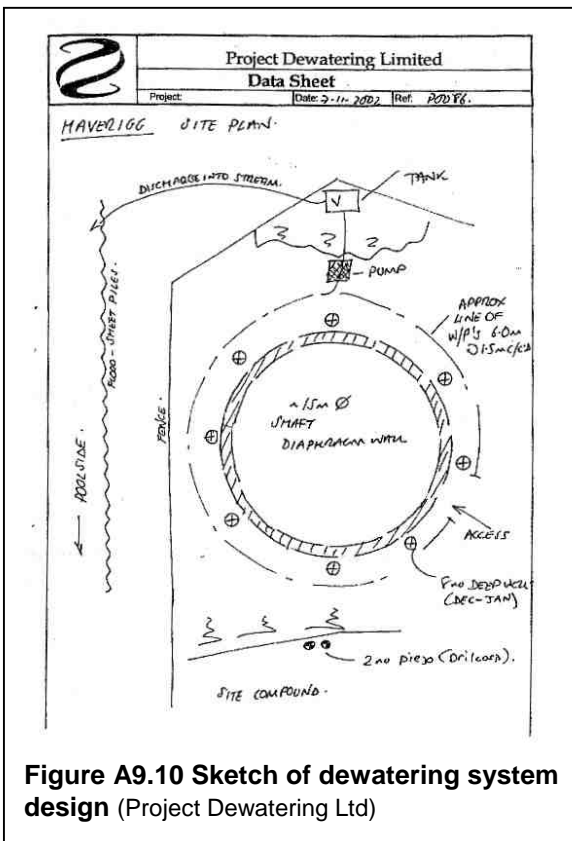 Project Dewatering Limited
Data Sheet
Project: Date: 2-11-2002 Ref: P0086.
HAVERIGG SITE PLAN.
DISCHARGE INTO STREAM.
TANK
V
PUMP
APPROX
LINE OF
W/P's 6.0m
@1.5m c/c's
FLOOD-SHEET PILES.
FENCE.
POOLSIDE.
~15m Ø
SHAFT
DIAPHRAGM WALL
ACCESS
8 no DEEPWELLS
(DEC-JAN)
2 no piezo (Drilcorp).
SITE COMPOUND.
Figure A9.10 Sketch of dewatering system
design (Project Dewatering Ltd)